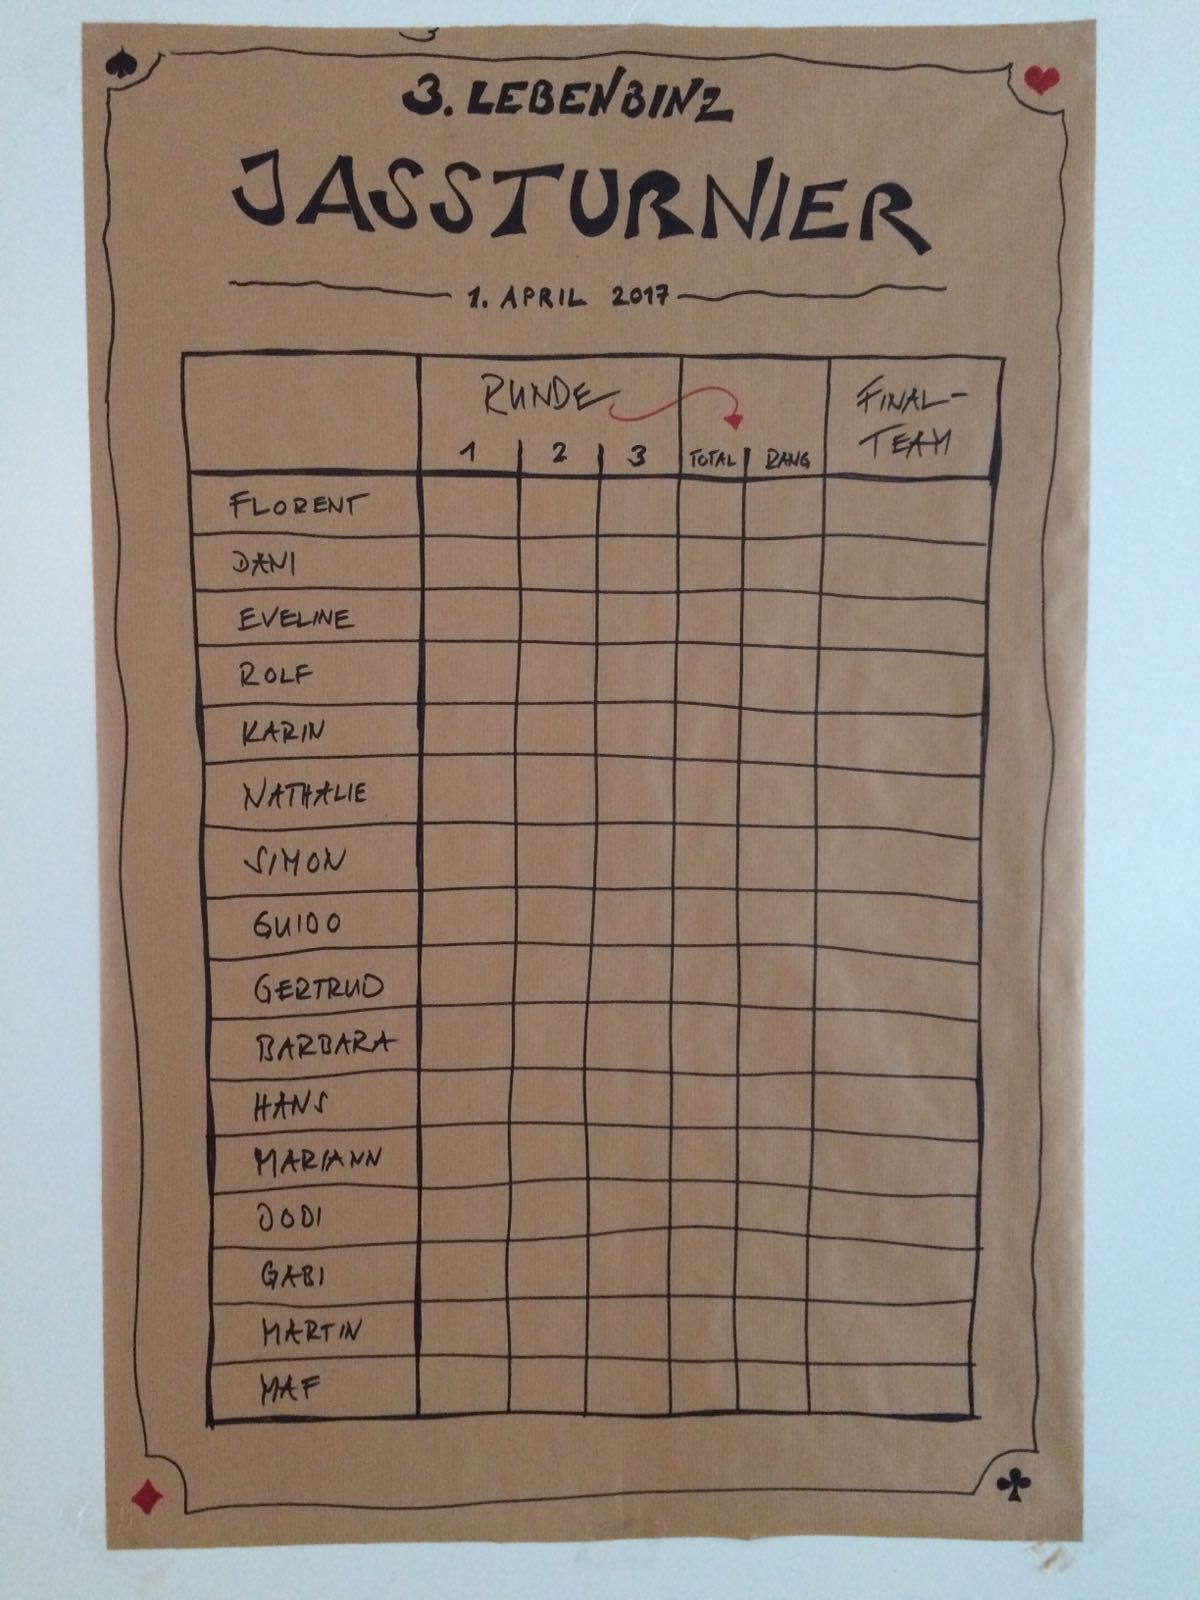 3. LEBENBINZ
JASSTURNIER
1. APRIL 2017
RUNDE
FINAL-
TEAM
1 2 3 TOTAL RANG
FLORENT
DANI
EVELINE
ROLF
KARIN
NATHALIE
SIMON
GUIDO
GERTRUD
BARBARA
HANS
MARIANN
DODI
GABI
MARTIN
MAF